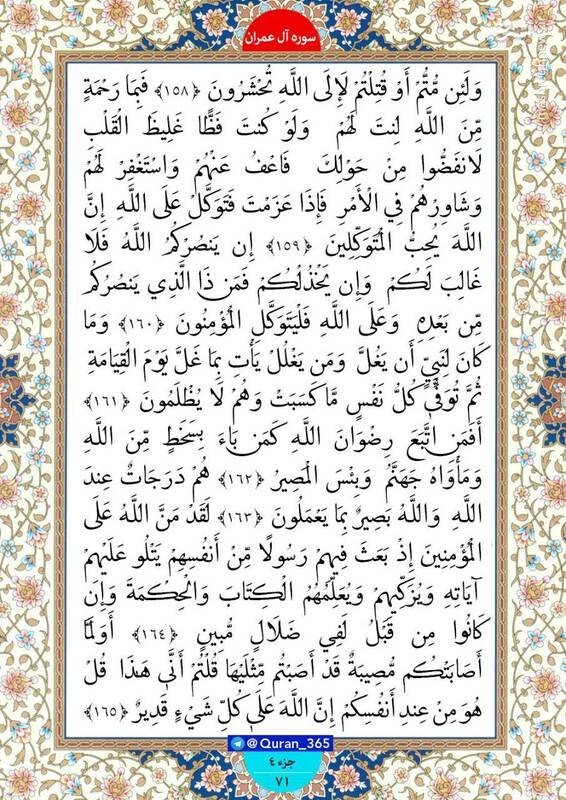 سوره آل عمران
وَلَئِن مُّتُّمْ أَوْ قُتِلْتُمْ لَإِلَى اللَّهِ تُحْشَرُونَ ﴿١٥٨﴾ فَبِمَا رَحْمَةٍ
مِّنَ اللَّهِ لِنتَ لَهُمْ وَلَوْ كُنتَ فَظًّا غَلِيظَ الْقَلْبِ
لَانفَضُّوا مِنْ حَوْلِكَ فَاعْفُ عَنْهُمْ وَاسْتَغْفِرْ لَهُمْ
وَشَاوِرْهُمْ فِي الْأَمْرِ فَإِذَا عَزَمْتَ فَتَوَكَّلْ عَلَى اللَّهِ إِنَّ
اللَّهَ يُحِبُّ الْمُتَوَكِّلِينَ ﴿١٥٩﴾ إِن يَنصُرْكُمُ اللَّهُ فَلَا
غَالِبَ لَكُمْ وَإِن يَخْذُلْكُمْ فَمَن ذَا الَّذِي يَنصُرُكُم
مِّن بَعْدِهِ وَعَلَى اللَّهِ فَلْيَتَوَكَّلِ الْمُؤْمِنُونَ ﴿١٦٠﴾ وَمَا
كَانَ لِنَبِيٍّ أَن يَغُلَّ وَمَن يَغْلُلْ يَأْتِ بِمَا غَلَّ يَوْمَ الْقِيَامَةِ
ثُمَّ تُوَفَّىٰ كُلُّ نَفْسٍ مَّا كَسَبَتْ وَهُمْ لَا يُظْلَمُونَ ﴿١٦١﴾
أَفَمَنِ اتَّبَعَ رِضْوَانَ اللَّهِ كَمَن بَاءَ بِسَخَطٍ مِّنَ اللَّهِ
وَمَأْوَاهُ جَهَنَّمُ وَبِئْسَ الْمَصِيرُ ﴿١٦٢﴾ هُمْ دَرَجَاتٌ عِندَ
اللَّهِ وَاللَّهُ بَصِيرٌ بِمَا يَعْمَلُونَ ﴿١٦٣﴾ لَقَدْ مَنَّ اللَّهُ عَلَى
الْمُؤْمِنِينَ إِذْ بَعَثَ فِيهِمْ رَسُولًا مِّنْ أَنفُسِهِمْ يَتْلُو عَلَيْهِمْ
آيَاتِهِ وَيُزَكِّيهِمْ وَيُعَلِّمُهُمُ الْكِتَابَ وَالْحِكْمَةَ وَإِن
كَانُوا مِن قَبْلُ لَفِي ضَلَالٍ مُّبِينٍ ﴿١٦٤﴾ أَوَلَمَّا
أَصَابَتْكُم مُّصِيبَةٌ قَدْ أَصَبْتُم مِّثْلَيْهَا قُلْتُمْ أَنَّىٰ هَٰذَا قُلْ
هُوَ مِنْ عِندِ أَنفُسِكُمْ إِنَّ اللَّهَ عَلَىٰ كُلِّ شَيْءٍ قَدِيرٌ ﴿١٦٥﴾
@Quran_365
جزء ٤
٧١